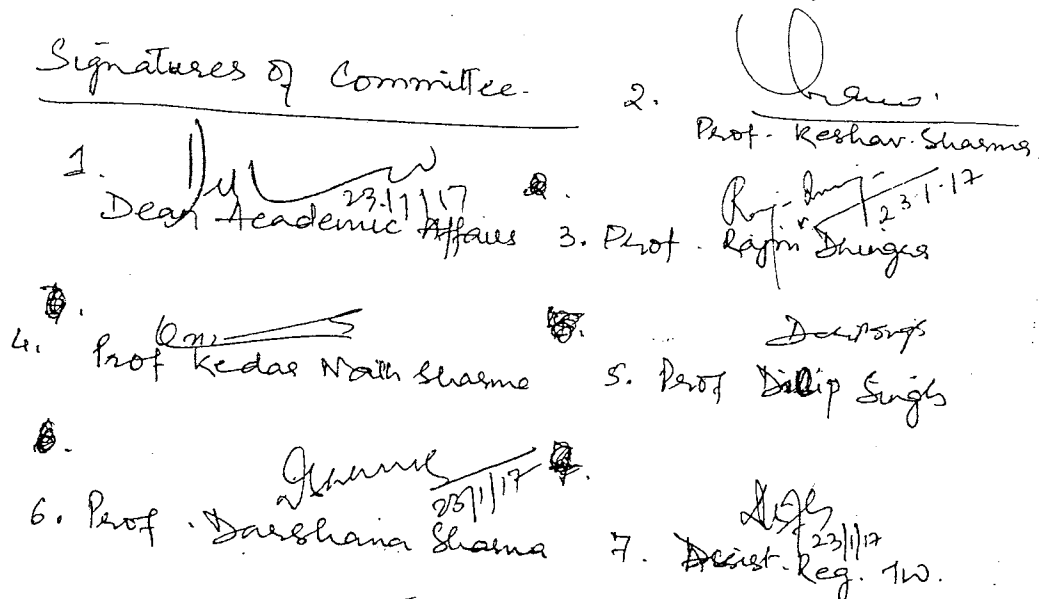 Signatures of Committee.
1.
23/1/17
Dean Academic Affairs
2.
Prof. Keshav Sharma
23.1.17
3. Prof. Rajni Dhingra
4. Prof Kedar Nath Sharma
5. Prof Dilip Singh
23/1/17
6. Prof. Darshana Sharma
23/1/17
7. Assist. Reg.